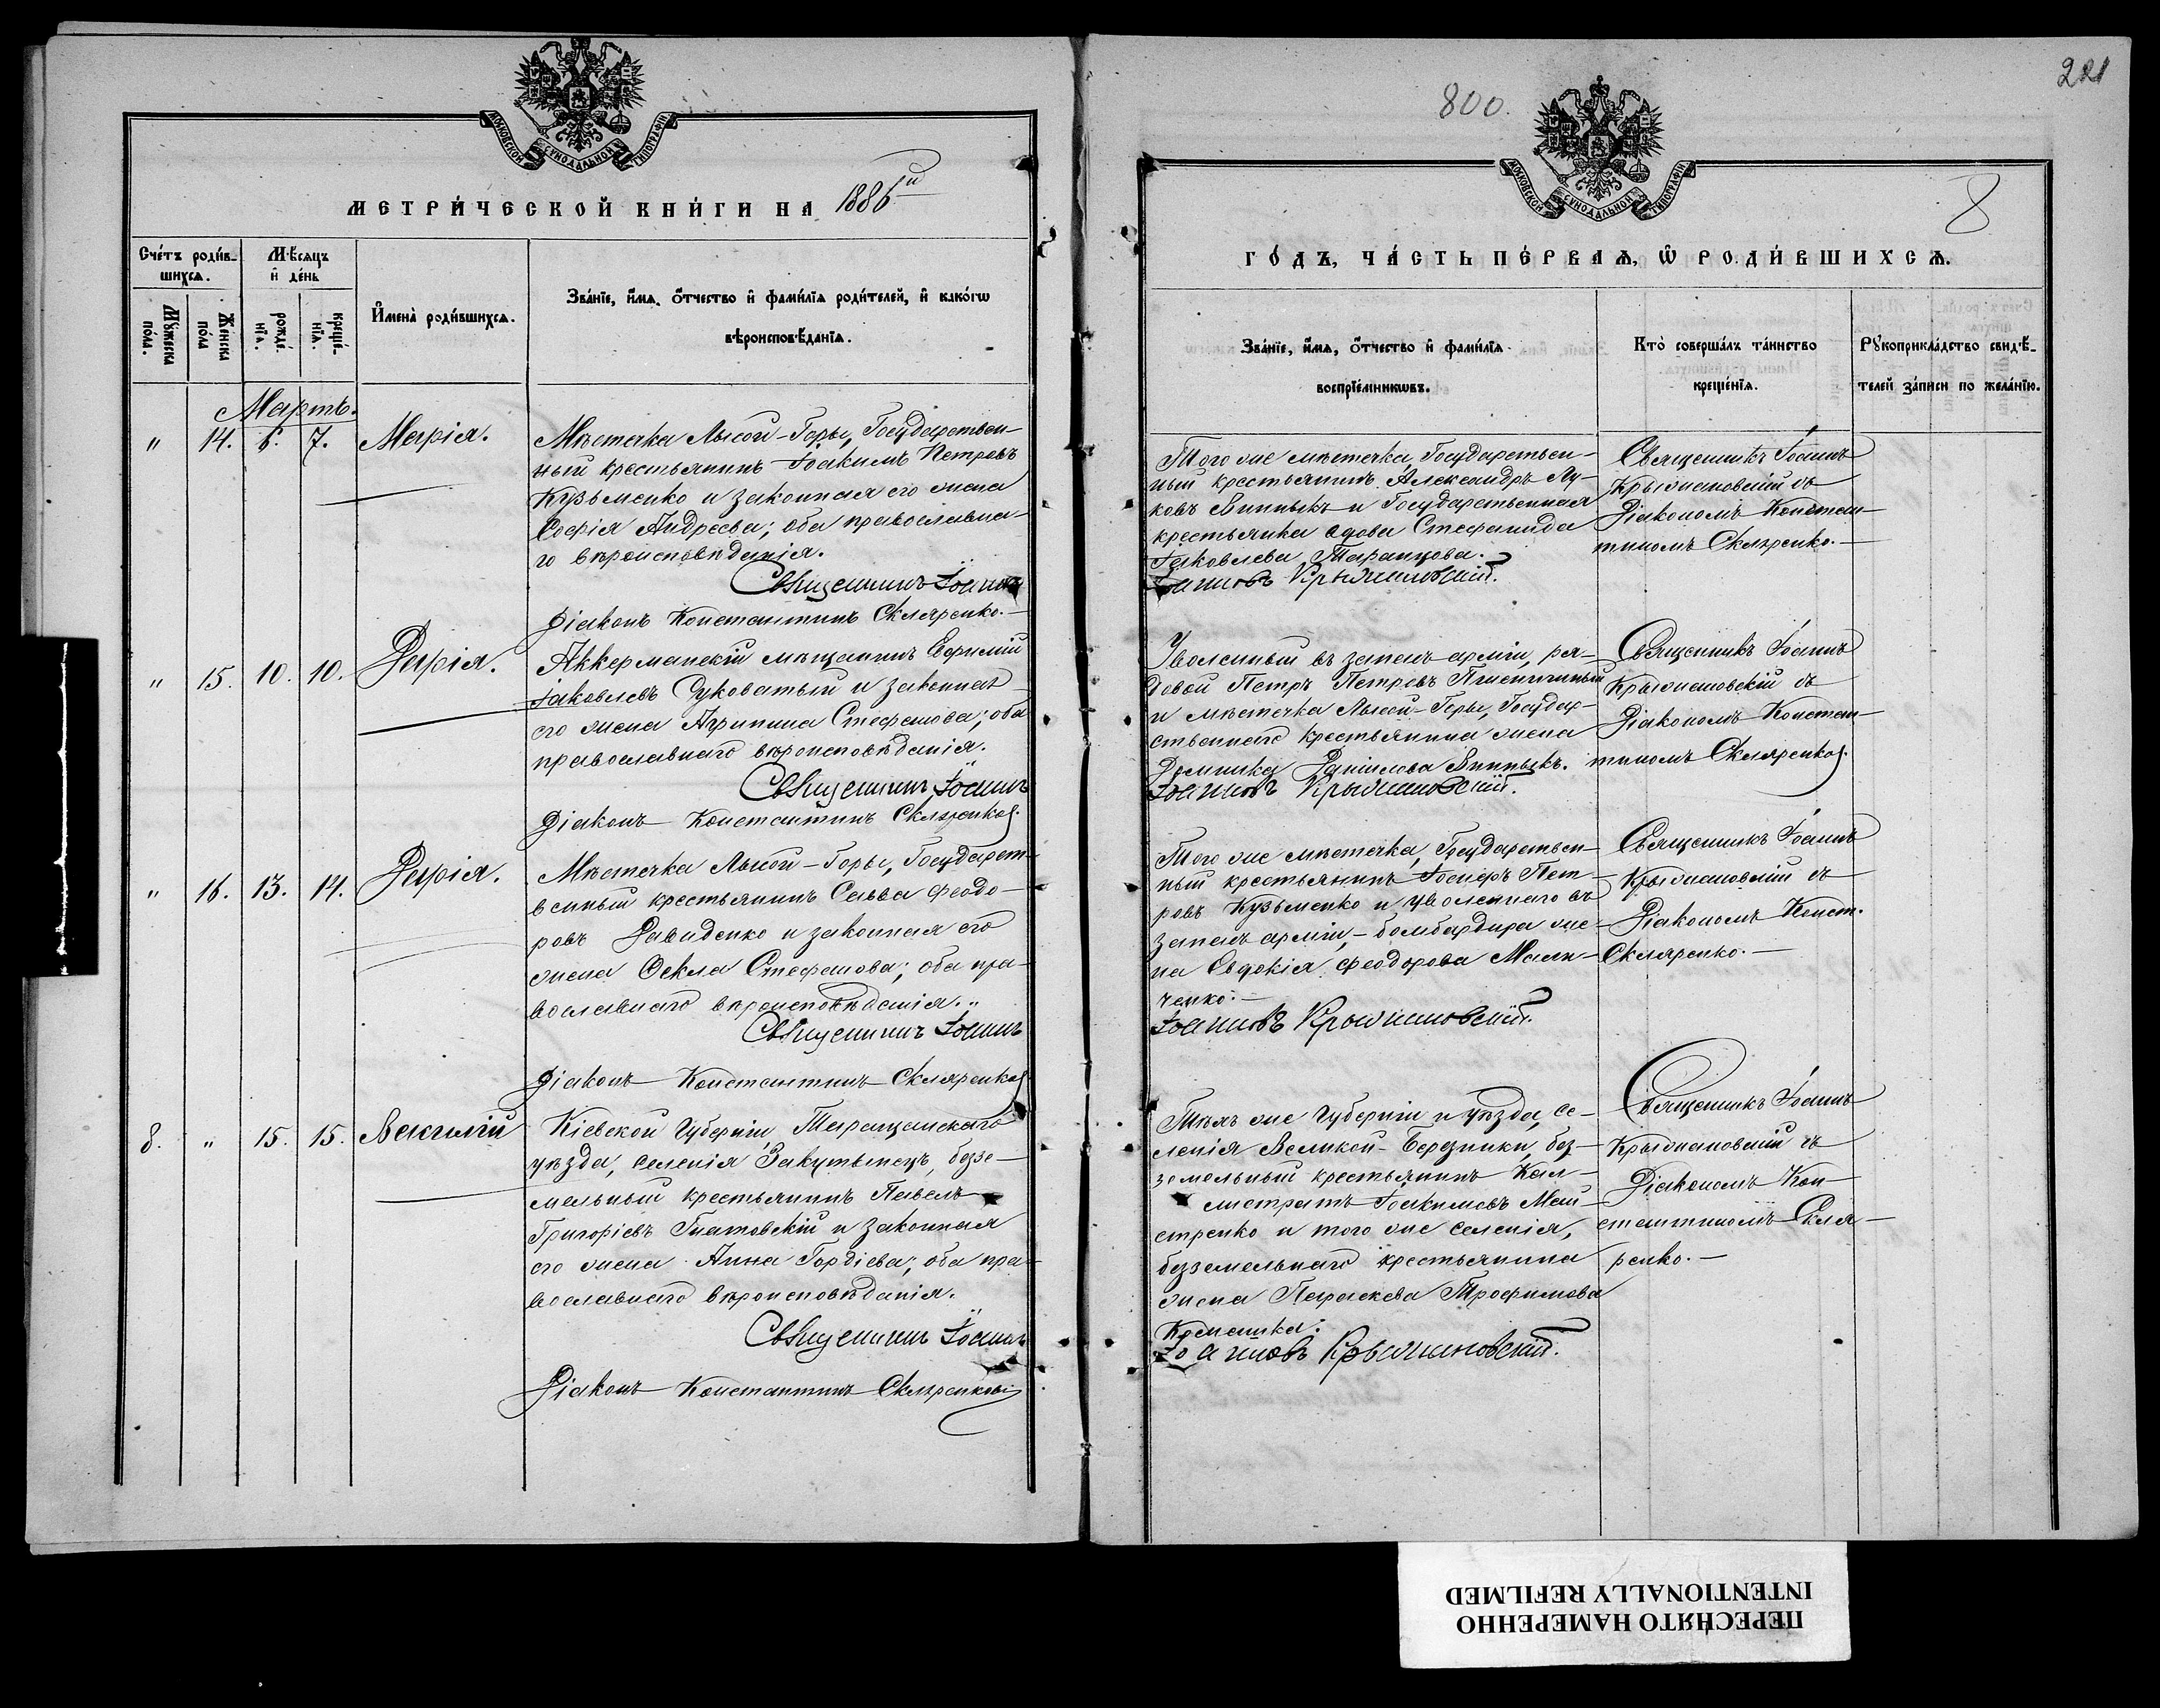 МОСКОВСКОЙ СУНОДАЛЬНОЙ ТИПОГРАФІИ
МЕТРИ́ЧЕСКОЙ КНИ́ГИ НА 1886й
Сче́тъ роди́в-
шихсѧ.
Мѣ́сѧцъ
и҆ де́нь
Мꙋ́жеска
по́ла.
Же́нска
по́ла
рожде́-
нїѧ.
креще́-
нїѧ.
И҆мена̀ роди́вшихсѧ.
Зва́нїе, и҆́мѧ, ѻ҆́тчество и҆ фами́лїѧ роди́телей, и҆ како́гѡ
вѣроисповѣ́данїѧ.
Мартъ.
" 14. 6. 7. Марія.
Мѣстечка Лысой-Горы, Государствен-
ный крестьянинъ Іоакимъ Петровъ
Кузьменко и законная его жена
Софія Андреева; оба православна-
го вѣроисповѣданія.
Священникъ Іоаннъ
Діаконъ Константинъ Скляренко.—
" 15. 10. 10. Дарія.
Аккерманскій мѣщанинъ Ефимій
Іаковлевъ Суковатый и законная
его жена Агрипина Стефанова; оба
православнаго вѣроисповѣданія.
Священникъ Іоаннъ
Діаконъ Константинъ Скляренко.
" 16. 13. 14. Дарія.
Мѣстечка Лысой-Горы, Государст-
венный крестьянинъ Савва Феодо-
ровъ Давиденко и законная его
жена Ѳекла Стефанова; оба пра-
вославнаго вѣроисповѣданія.
Священникъ Іоаннъ
Діаконъ Константинъ Скляренко
8. " 15. 15. Василій
Кіевской Губерніи, Таращанскаго
уѣзда, селенія Закутынецъ, безе-
мельный крестьянинъ Павелъ
Григоріевъ Гнатовскій и законная
его жена Анна Гордіева; оба пра-
вославнаго вѣроисповѣданія.
Священникъ Іоаннъ
Діаконъ Константинъ Скляренко
221
800.
8
МОСКОВСКОЙ СУНОДАЛЬНОЙ ТИПОГРАФІИ
ГО́ДЪ, ЧА́СТЬ ПЕ́РВАѦ, Ѡ҆ РОДИ́ВШИХСѦ.
Зва́нїе, и҆́мѧ, ѻ҆́тчество и҆ фами́лїѧ
воспрїе́мникѡвъ.
Кто̀ соверша́лъ та́инство
креще́нїѧ.
Рꙋкоприкла́дство свидѣ́-
телей за́писи по жела́нїю.
Того же мѣстечка, Государствен-
ный крестьянинъ Александръ Лу-
ковъ Винныкъ и Государственная
крестьянка вдова Стефанида
Іаковлева Таранцова.
Іоанновъ Крыжановскій.
Священникъ Іоаннъ
Крыжановскій съ
Діакономъ Констан-
тиномъ Скляренко.—
Уволенный въ запасъ арміи, ря-
довой Петръ Петровъ Пшеничный
и мѣстечка Лысой-Горы, Государ-
ственнаго крестьянина жена
Домника Даніилова Винныкъ.
Іоанновъ Крыжановскій.
Священникъ Іоаннъ
Крыжановскій съ
Діакономъ Констан-
тиномъ Скляренко.
Того же мѣстечка, Государствен-
ный крестьянинъ Іосифъ Пет-
ровъ Кузьменко и уволеннаго въ
запасъ арміи,- бомбардира же-
на Евдокія Феодорова Мали-
ченко.—
Іоанновъ Крыжановскій.
Священникъ Іоаннъ
Крыжановскій съ
Діакономъ Конст.
Скляренко.—
Тѣхъ же Губерніи и уѣзда, се-
ленія Великой-Березянки, без-
земельный крестьянинъ Кал-
листратъ Іоакимовъ Май-
стренко и того же селенія,
безземельнаго крестьянина
жена Параскева Трофимова
Іоанновъ Крыжановскій.
Священникъ Іоаннъ
Крыжановскій съ
Діакономъ Кон-
стантиномъ Скля-
ренко.—
ПЕРЕСНЯТО НАМЕРЕННО
INTENTIONALLY REFILMED